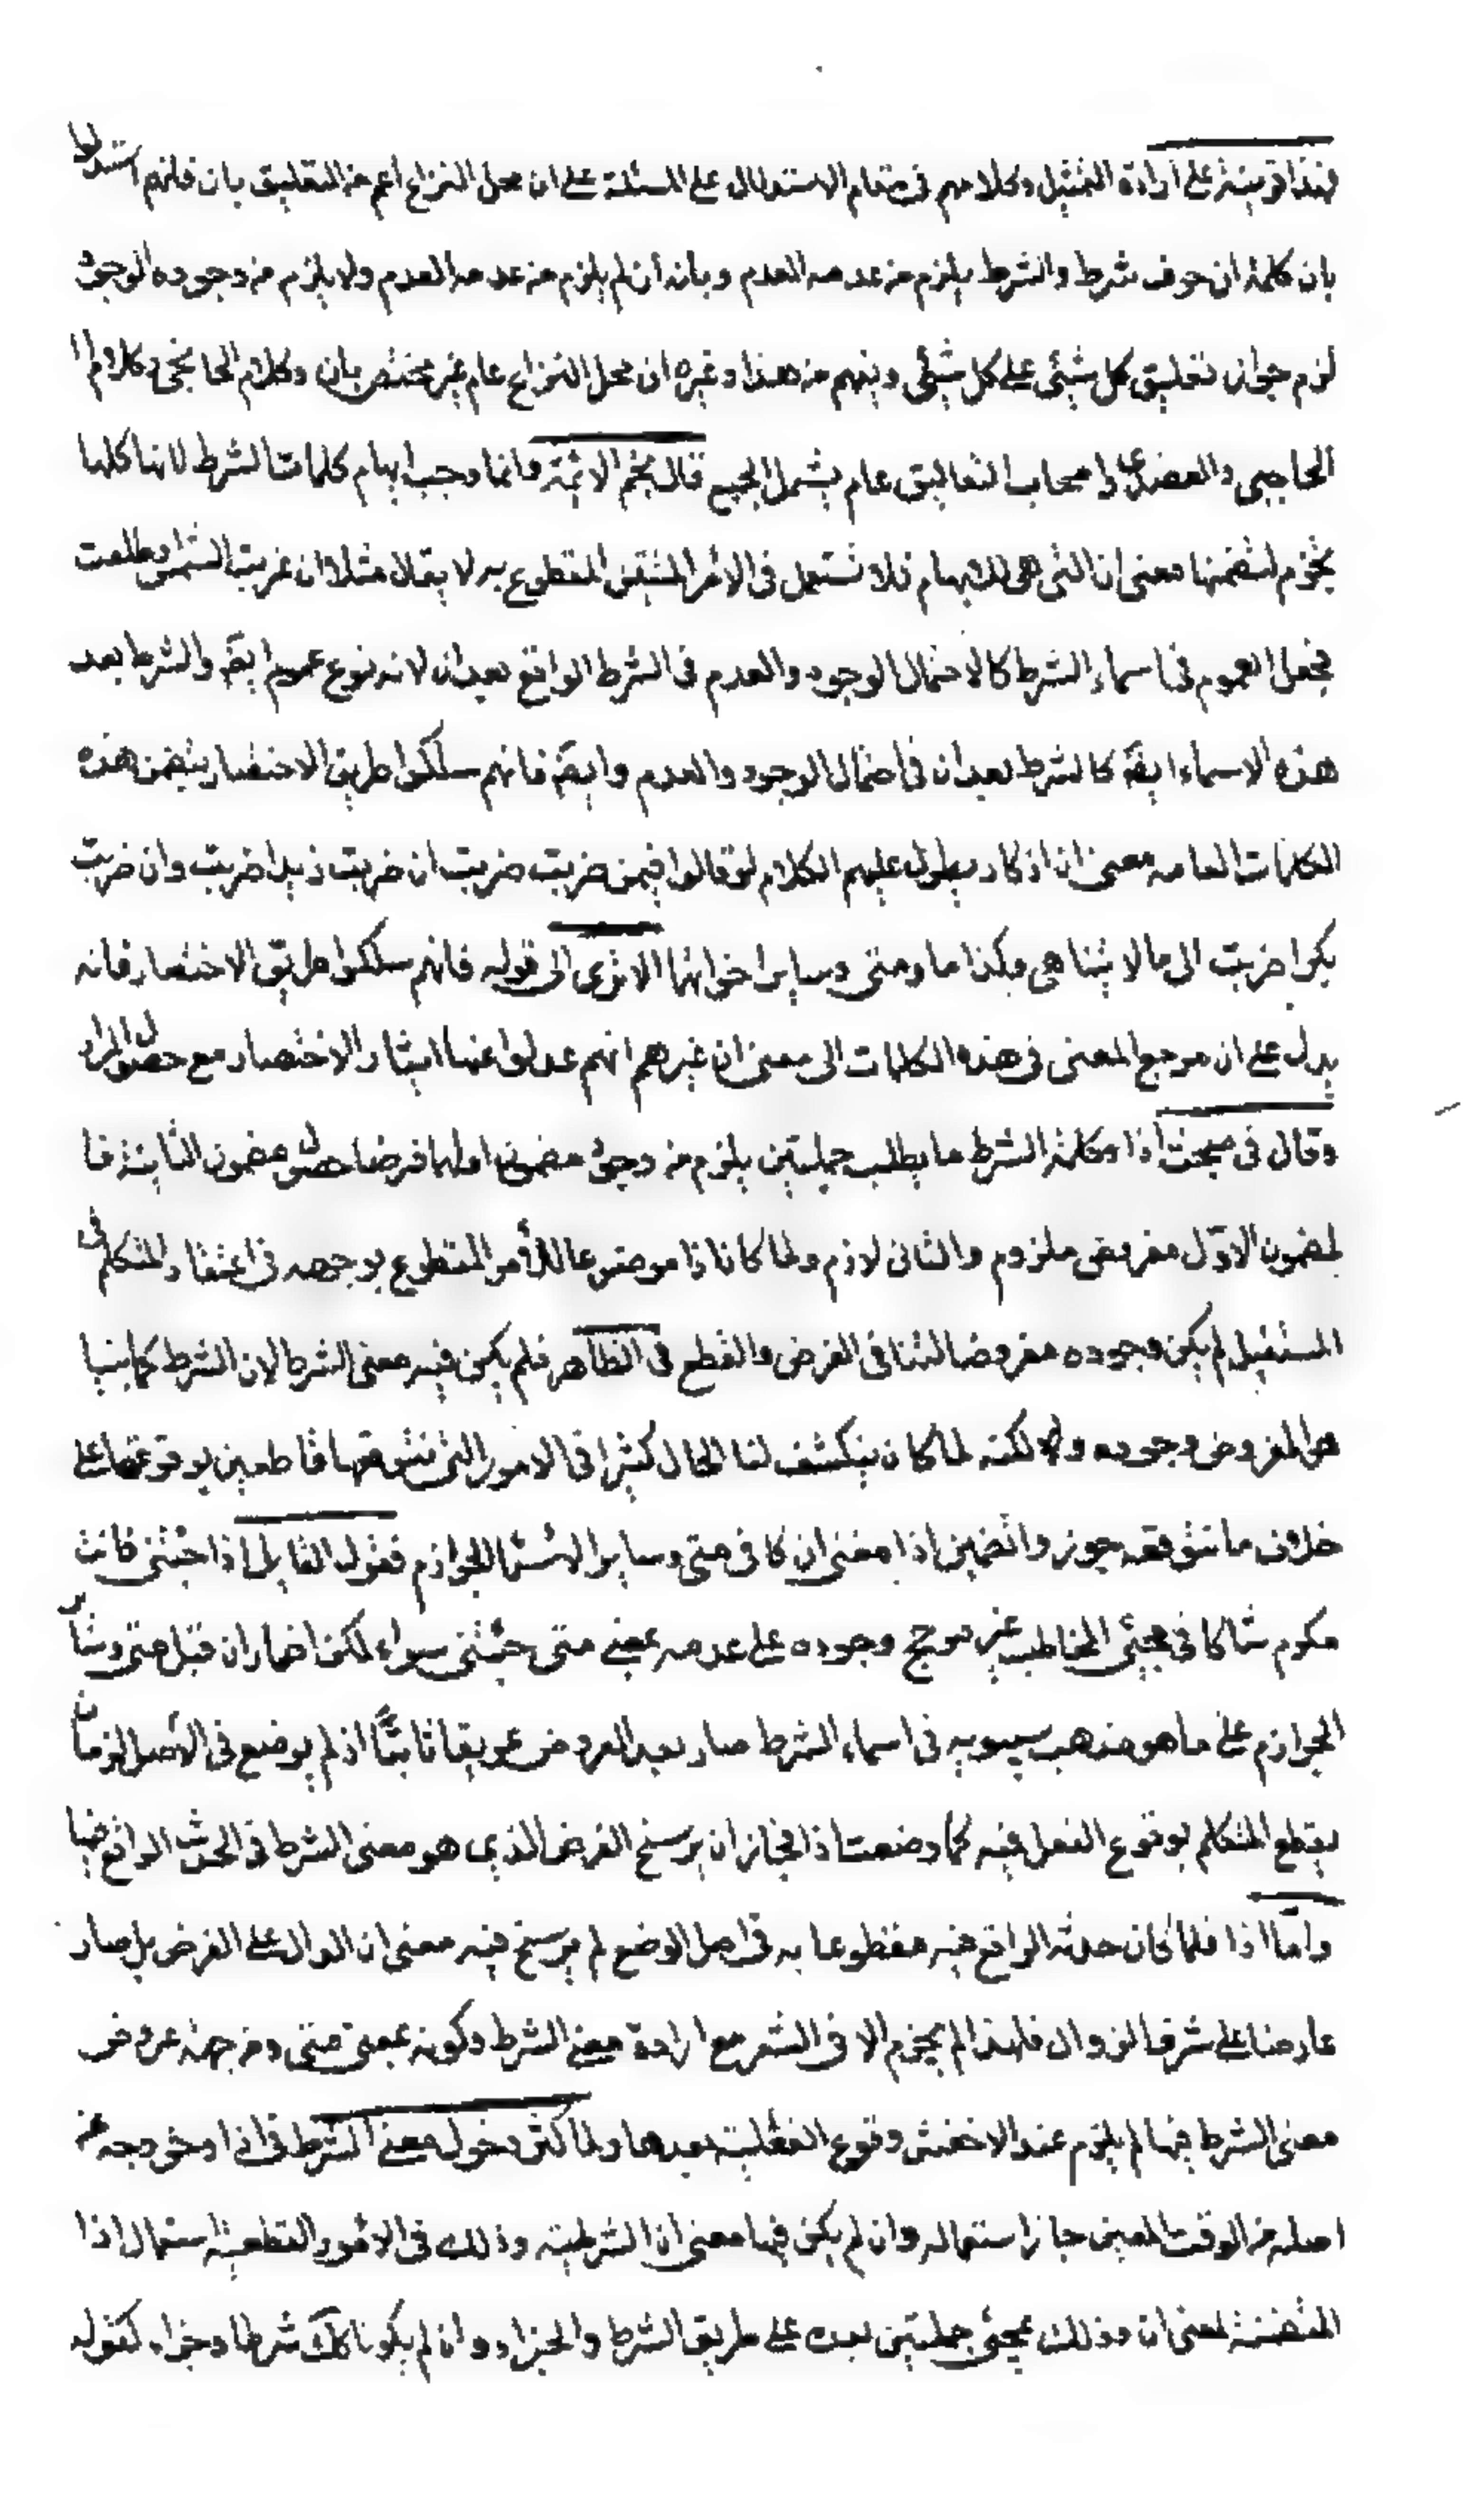 فهذا قرينة على ارادة التمثيل وكلامهم فى مقام الاستدلال على المسئلة على ان محل النزاع اعم من التعليق بان فانهم استدلوا
بان كلمة ان حرف شرط والشرط يلزم من عدمه العدم وبانه ان لم يلزم من عدمه العدم ولا يلزم من وجوده الوجود
لزم جواز تعليق كل شيئ على كل شيئ ويفهم من هذا وغيره ان محل النزاع عام غير مختص بان وكلام الحاجبى وكلام
الحاجبى والعضدى واصحاب التعاليق عام يشمل الجميع قال نجم الائمة وانما وجب ابهام كلمات الشرط لانها كلها
يجزم لتضمنها معنى ان التى هى للابهام فلا تستعمل فى الامر المتيقن المقطوع به لا يقال مثلا ان غربت الشمس وطلعت
فجعل العموم فى اسماء الشرط كالاحتمال الوجود والعدم فى الشرط الواقع بعد ان لانه نوع عموم ايضً والشرط بعد
هذه الاسماء ايضً كالشرط بعد ان فى احتمال الوجود والعدم وايضً فانهم سلكوا طريق الاختصار بتضمن هذه
الكلمات العامه معنى ان اذ كاد يطول عليهم الكلام لو قالوا فى من ضربت ضربت ان ضربت زيدا ضربت وان ضربت
بكرا ضربت الى ما لا يتناهى وهكذا ما ومتى وساير اخواتها الا ترى الى قوله فانهم سلكوا طريق الاختصار فانه
يدل على ان مرجع المعنى فى هذه الكلمات الى معنى ان غيرهم انهم عدلوا عنها ايثار الاختصار مع حصول المراد
وقال فى مبحث اذا وكلمة الشرط ما يطلب جملتين يلزم من وجود مضمون اولهما فرضا حصول مضمون الثانية فا
لمضمون الاول مفروض ملزوم والثانى لازم ولما كان اذا موضوعا للأمر المقطوع بوجوده فى اعتقاد المتكلم فى
المستقبل لم يكن وجوده مفروضا لتنافى الفرض والقطع فى الظاهر فلم يكن فيه معنى الشرط لان الشرط كما بينا
هو المفروض وجوده لكنه لما كان ينكشف لنا الحال كثيرا فى الامور التى نتوقعها قاطعين بوقوعها على
خلاف ما نتوقعه جوزوا تضمين اذا معنى ان كما فى متى وساير الاسماء الجوازم فيقول القايل اذا جئتنى فانت
مكرم شاكا فى مجيئ المخاطب غير مرجح وجوده على عدمه بمعنى متى جئتنى سواء لكن اضمار ان قبل متى وساير
الجوازم على ما هو مذهب سيبويه فى اسماء الشرط صار بعد العروض عريقا ثابتاً اذ لم يوضع فى الاصل لزمان
يقطع المتكلم بوقوع الفعل فيه كما وضعت اذا فجاز ان يرسخ الفرض الذى هو معنى الشرط فى الحدث الواقع فيها
وامّا اذا فلما كان حدثه الواقع فيه مقطوعا به فى اصل الوضع لم يرسخ فيه معنى ان الدال على الفرض بل صار
عارضا على شرف الزوال فلهذا لم يجزم الا فى الشعر مع ارادة معنى الشرط وكونه بمعنى متى ومن جهة عروض
معنى الشرط فيها لم يلزم عند الاخفش وقوع الفعلية بعدها ولما كثر دخول معنى الشرط فى اذا وخروجه عن
اصله من الوقت المعين جاز استعماله وان لم يكن فيها معنى ان الشرطية وذلك فى الامور القطعية استعمال اذا
المتضمنة لمعنى ان وذلك بمجيئ جملتين بعده على طريق الشرط والجزاء وان لم يكونا كك شرطا وجزاء كقوله